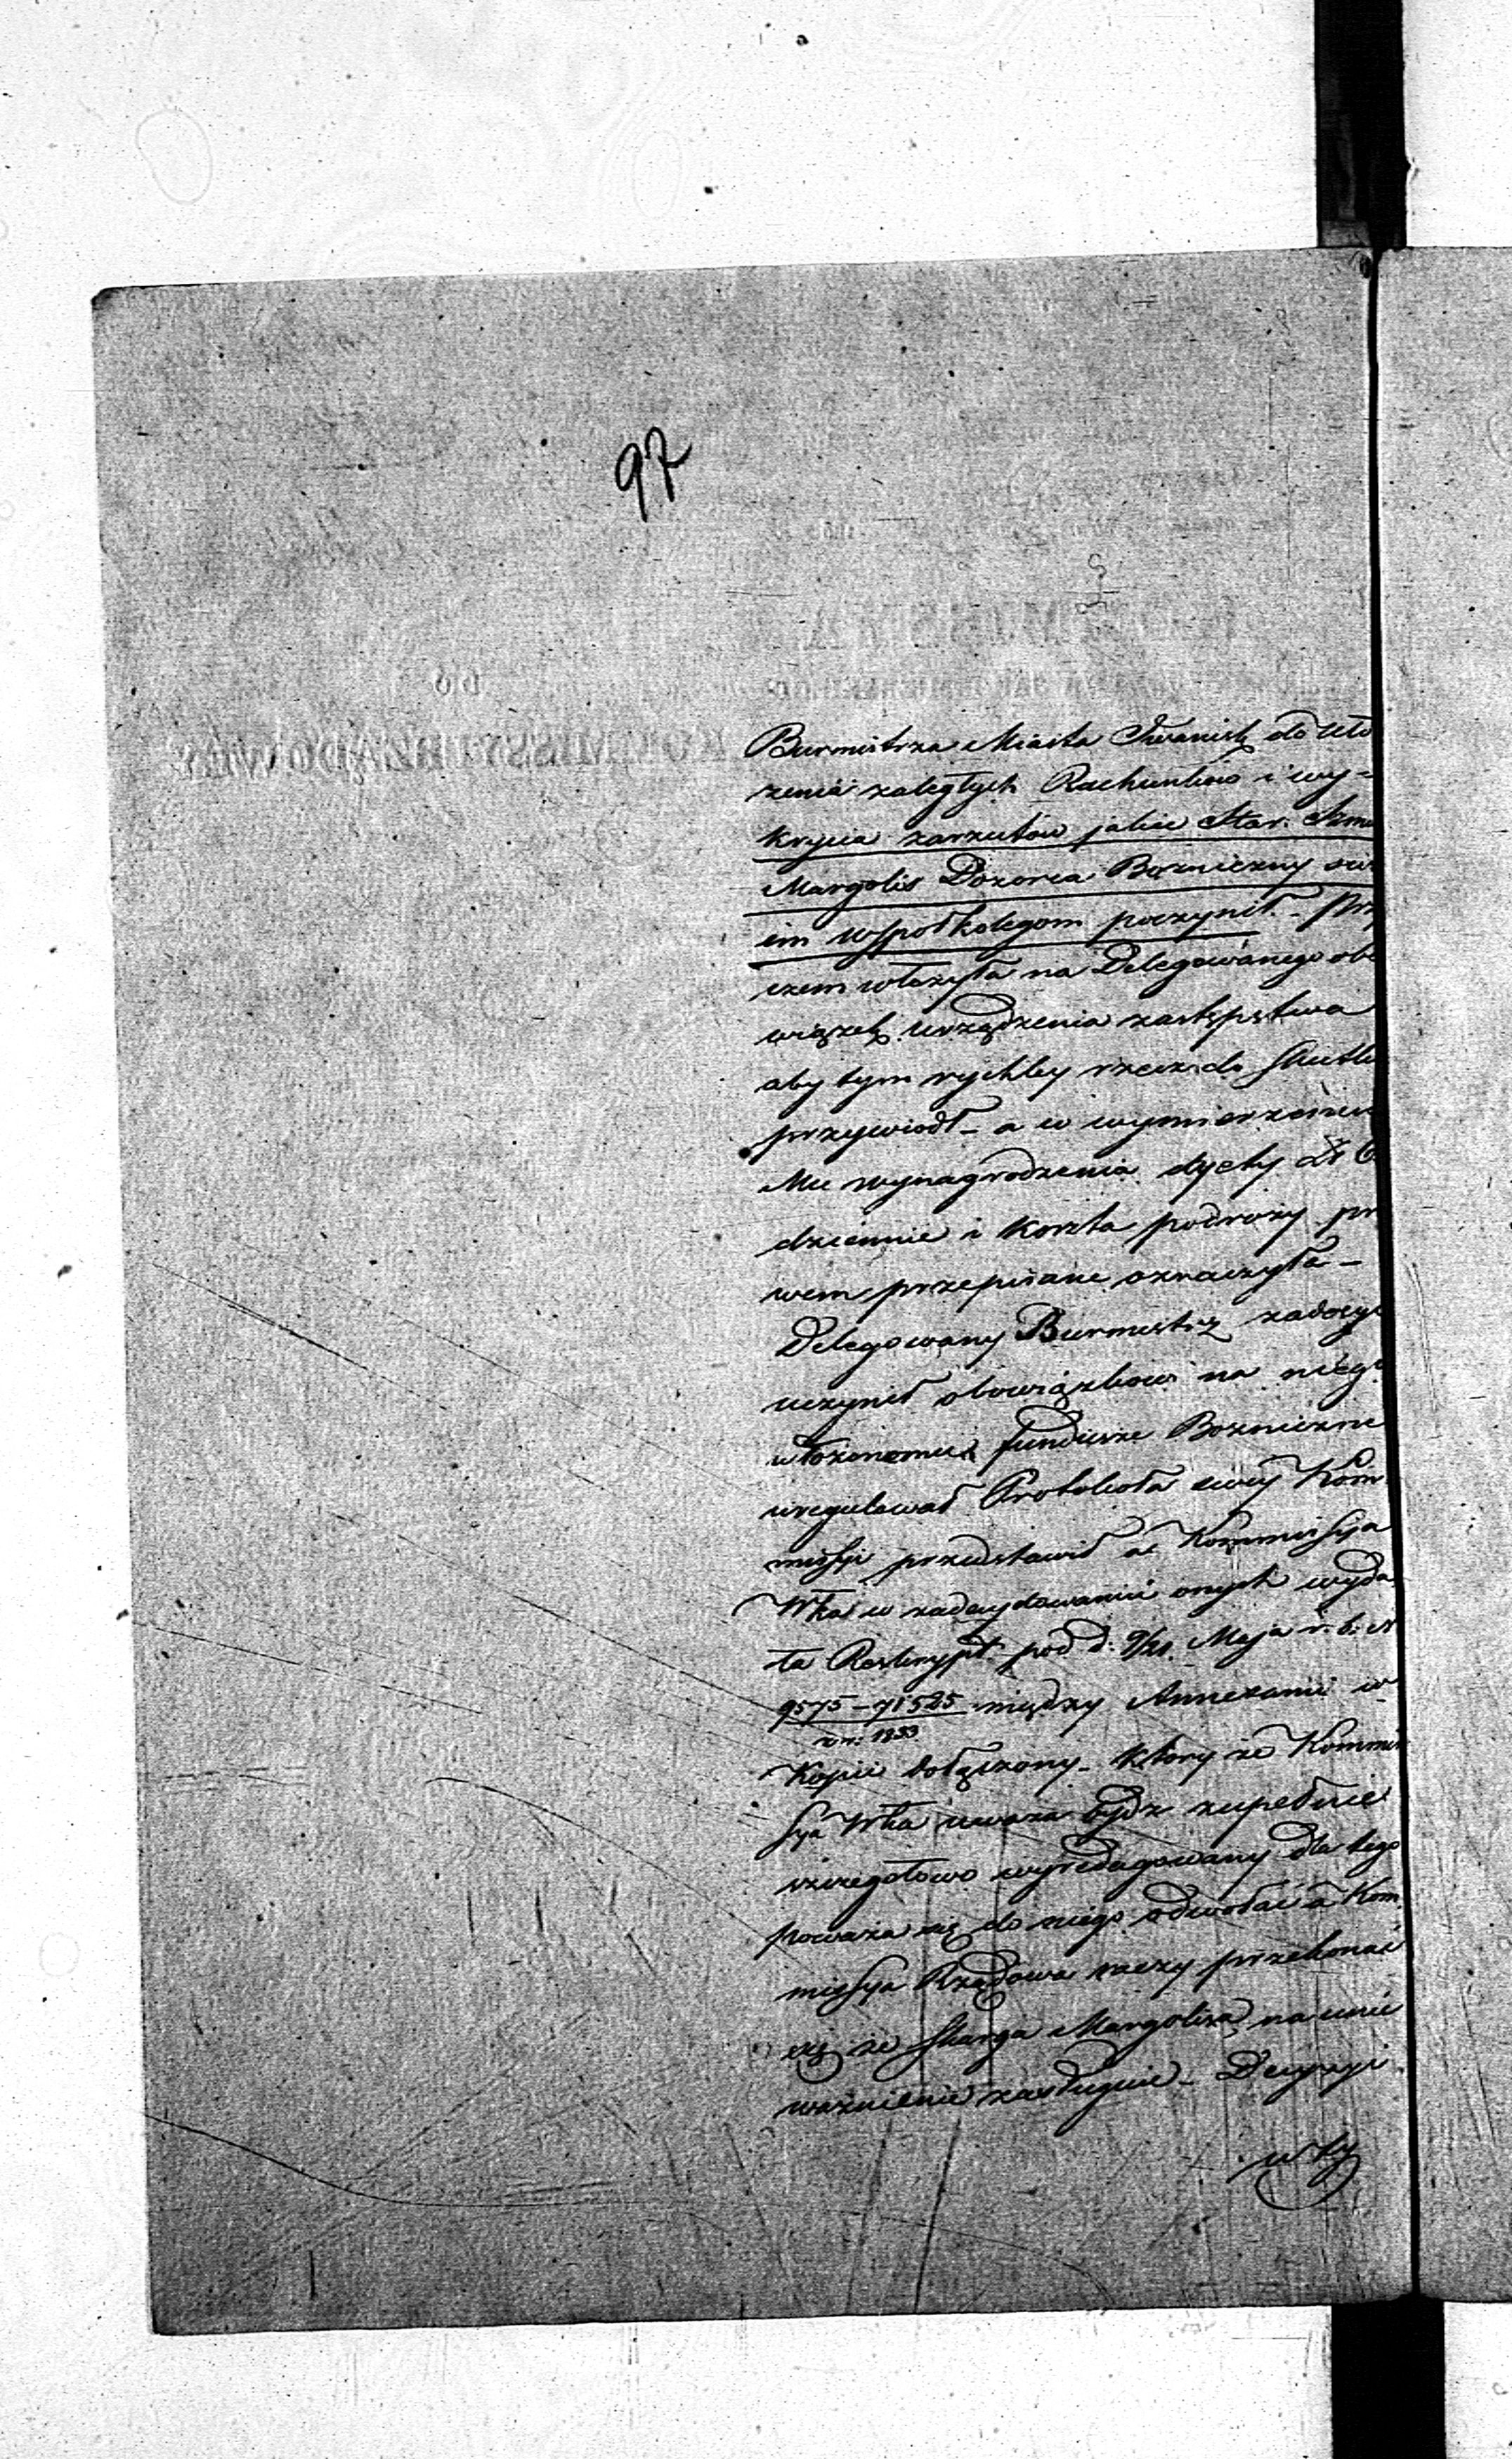 97
Burmistrza Miasta Iwanisk do uło
żenia zaległych Rachunków i wy-
krycia zarzutów jakie Star: Szmu
Margolis Dozorca Bożniczny swo
im współkolegom poczynił - Przy
czem włożyła na Delegowanego obo
wiązek urządzenia zastępstwa
aby tym rychley rzecz do skutku
przywiodł - a w wymierzeniu
Mu wynagrodzenia dyety Zł 6
dziennie i koszta podroży pra
wem przepisane oznaczyła -
Delegowany Burmistrz zadosyć
uczynił obowiązkowi na niego
włożonemu fundusze Bożniczne
uregulował Protokoła swey Kom
missyi przedstawił a Kommissya
Wtka w zadecydowaniu onych wyda
ła Reskrypt pod d: 9/21. Maja r: b: N
9575 - 71525 między Annexami w
z r: 1833
Kopii dołączony - który że Kommis
sya Wtka uważa bydź zupełnie
szczegołowo wyredagowany dla tego
poważa się do niego odwołać a Kom
missya Rządowa raczy przekonać
się że skarga Margolisa na unie
ważnienie zasługuie - Decyzyi
w tey
DO
KOMMISSYI RZĄDOWEY